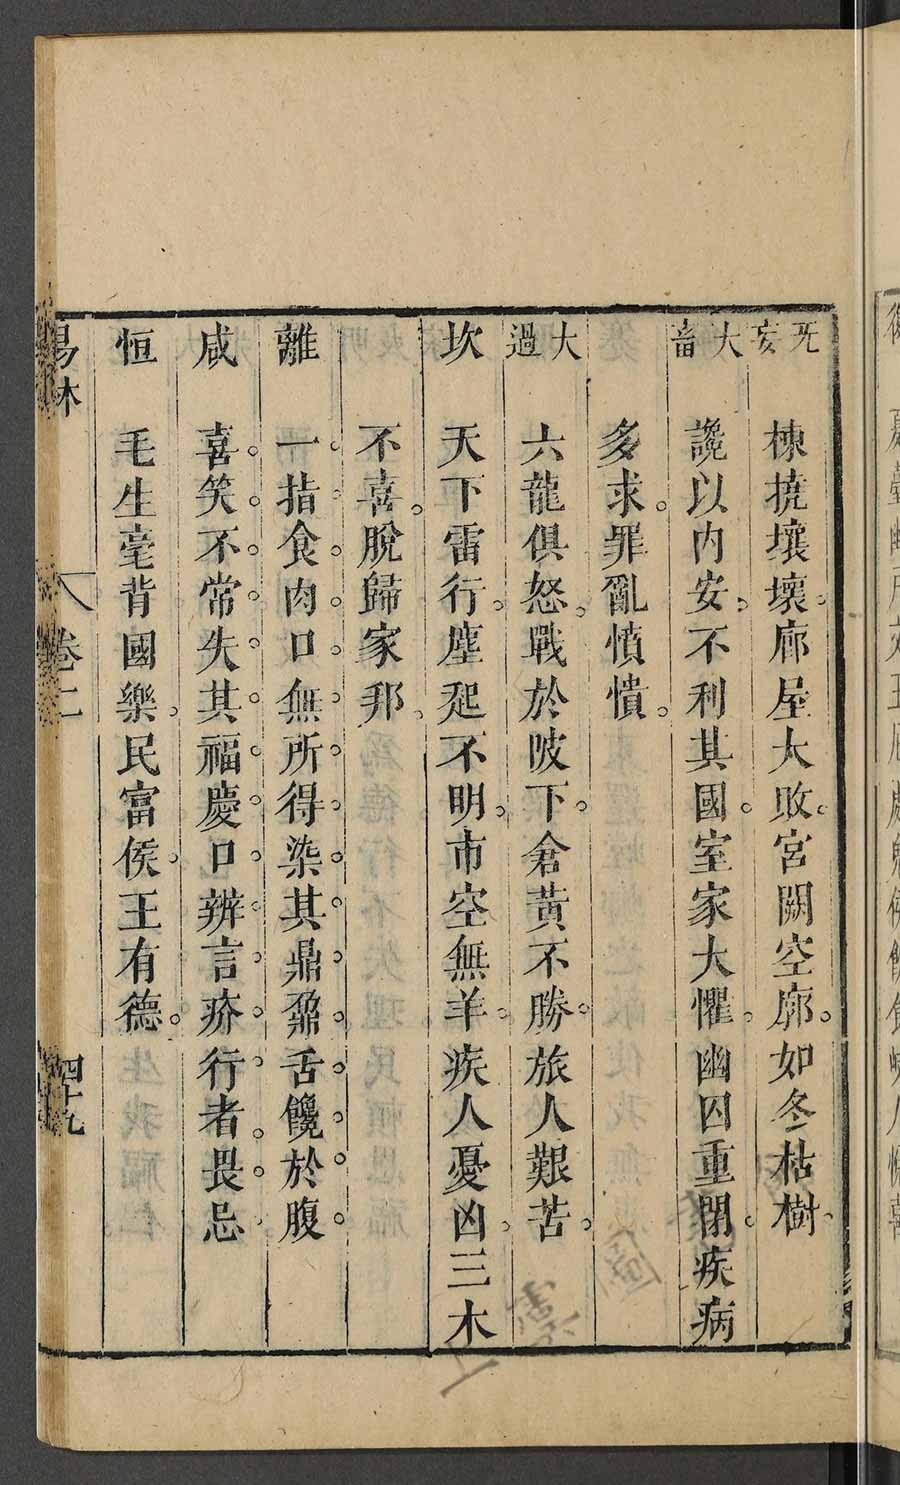 无妄 棟撓壞壞。廊屋大敗。宮闕空廓。如冬枯樹。
大畜 讒以內安。不利其國。室家大懼。幽囚重閉。疾病
多求。罪亂憤憒。
大過 六龍俱怒。戰於陂下。倉黃不勝。旅人艱苦。
坎 天下雷行。塵起不明。市空無羊。疾人憂凶。三木
不喜。脫歸家邦。
離 一指食肉。口無所得。染其鼎鼐。舌饞於腹。
咸 喜笑不常。失其福慶。口辨言疥。行者畏忌。
恒 毛生毫背。國樂民富。侯王有德。
易林 卷二 四十九